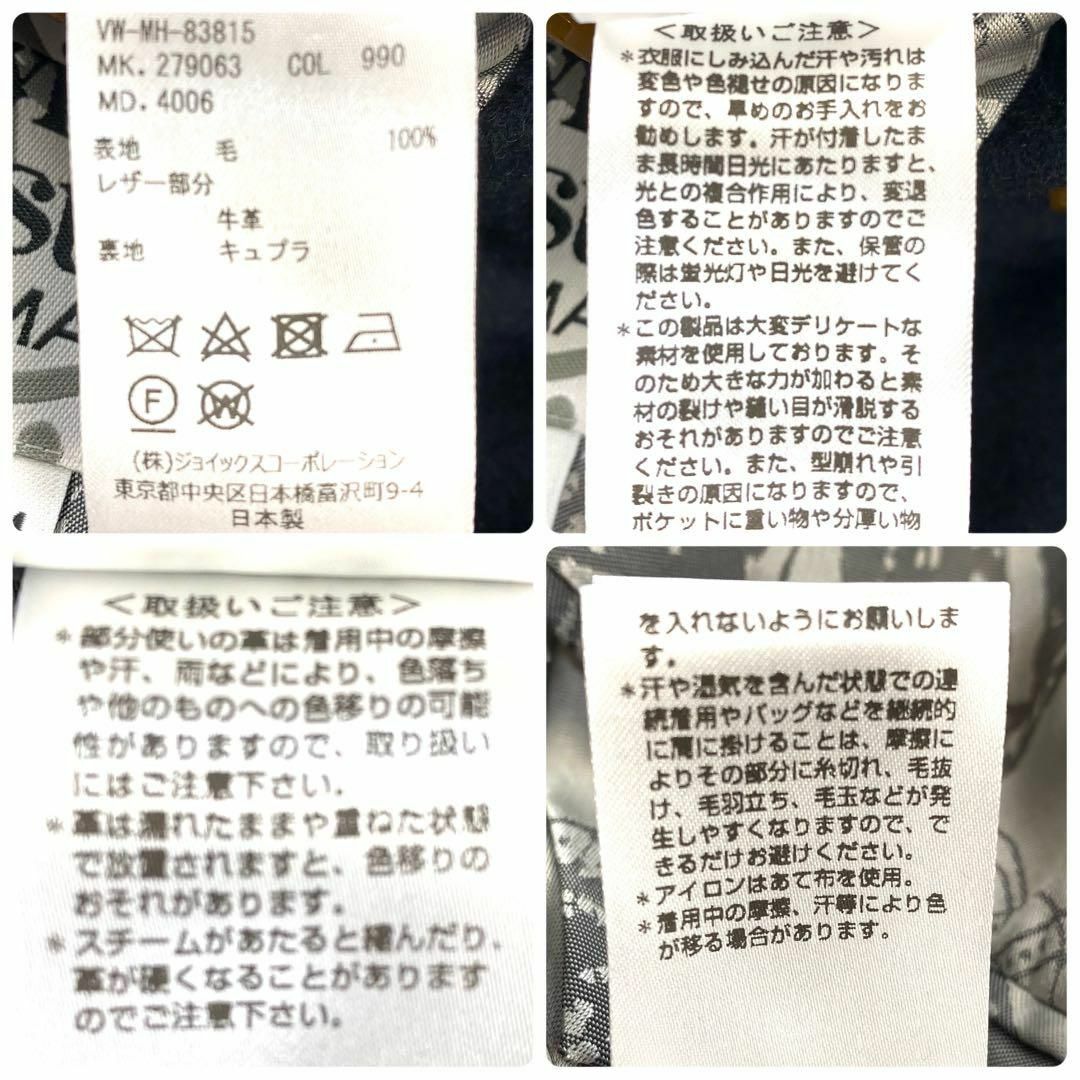 VW-MH-83815
MK. 279063 COL 990
MD. 4006
表地 毛 100%
レザー部分
牛革
裏地 キュプラ
F W
(株)ジョイックスコーポレーション
東京都中央区日本橋富沢町9-4
日本製
＜取扱いご注意＞
*衣服にしみ込んだ汗や汚れは
変色や色褪せの原因になりま
すので、早めのお手入れをお
勧めします。汗が付着したま
ま長時間日光にあたりますと、
光との複合作用により、変退
色することがありますのでご
注意ください。また、保管の
際は蛍光灯や日光を避けてく
ださい。
*この製品は大変デリケートな
素材を使用しております。そ
のため大きな力が加わると素
材の裂けや縫い目が滑脱する
おそれがありますのでご注意
ください。また、型崩れや引
裂きの原因になりますので、
ポケットに重い物や分厚い物
＜取扱いご注意＞
*部分使いの革は着用中の摩擦
や汗、雨などにより、色落ち
や他のものへの色移りの可能
性がありますので、取り扱い
にはご注意下さい。
*革は濡れたままや重ねた状態
で放置されますと、色移りの
おそれがあります。
*スチームがあたると縮んだり、
革が硬くなることがあります
のでご注意下さい。
を入れないようにお願いしま
す。
*汗や湿気を含んだ状態での連
続着用やバッグなどを継続的
に肩に掛けることは、摩擦に
よりその部分に糸切れ、毛抜
け、毛羽立ち、毛玉などが発
生しやすくなりますので、で
きるだけお避けください。
*アイロンはあて布を使用。
*着用中の摩擦、汗等により色
が移る場合があります。